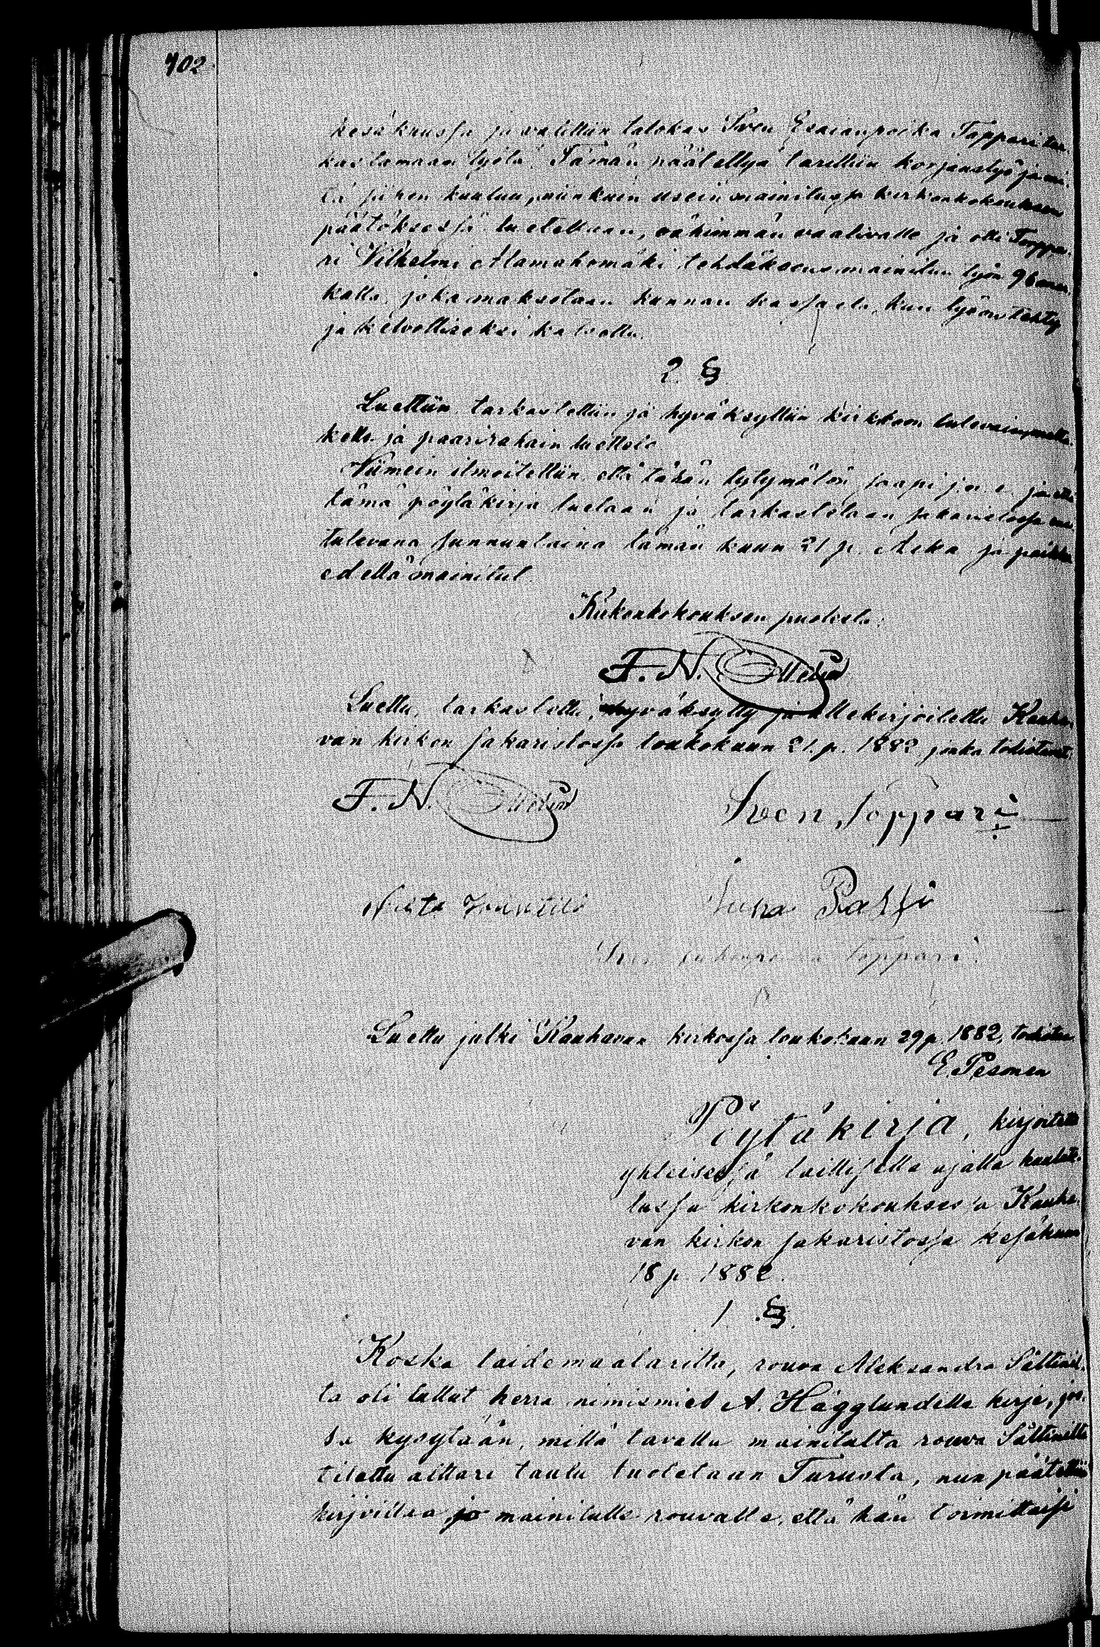 702
kesäkuussa ja valittiin talokas Sven Esaianpoika Toppari tar-
kastamaan työtä. Tämän päätettyä tarittiin korjaustyö ja mi-
tä siihen kuuluu, niinkuin usein mainitussa kirkonkokouksen
päätöksessä luetellaan, vähimmän vaativalle ja otti Torppa-
ri Vilhelmi Alamahomäki tehdäksensä mainitun työn 96
kalla, joka maksetaan kunnan kassasta, kun työ on tehty
ja kelvolliseksi katsottu.
2. §
Luettiin tarkastettiin ja hyväksyttiin kirkkoon tulevain
kello ja paarirahain luettelo
Niimein ilmoitettiin, että tähän tytymätön saapi j.n.e. ja että
tämä pöytäkirja luetaan ja tarkastetaan sakaristossa
tulevana sunnuntaina tämän kuun 21 p. Aika ja paikka
edellä mainitut.
Kirkonkokouksen puolesta:
F. N.
Luettu, tarkastettu, hyväksytty ja allekirjoitettu Kauha-
van kirkon sakaristossa toukokuun 21 p. 1882 jonka todistavat:
F. N.
Sven Toppari
Juha Passi
Sven Toppari
Luettu julki Kauhavan kirkossa toukokuun 29 p. 1882, todistaa
E. Pesonen
Pöytäkirja, kirjoitettu
yhteisessä laillisella ajalla kuulute-
tussa kirkonkokouksessa Kauha-
van kirkon sakaristossa kesäkuun
18 p. 1882.
1. §.
Koska taidemaalarilta, rouva Aleksandra Såltinil-
tä oli tullut herra nimismies A. Hägglundille kirje, jos-
sa kysytään, millä tavalla mainitulta rouva Såltinilta
tilattu alttari taulu tuotetaan Turusta, niin päätettiin
kirjoittaa jo mainitulle rouvalle, että hän toimittaisi